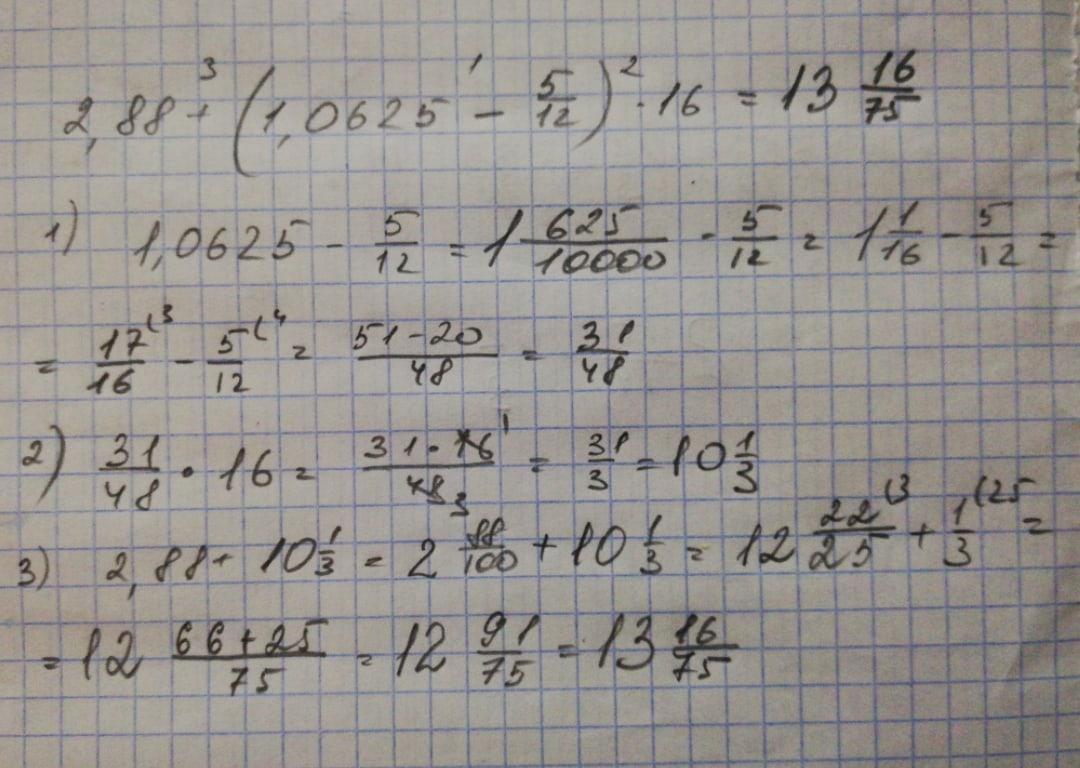 2,88 +³ (1,0625 −¹ 5/12) ·² 16 = 13 16/75
1) 1,0625 − 5/12 = 1 625/10000 - 5/12 = 1 1/16 − 5/12 =
= 17/16 (3 − 5/12 (4 = 51-20/48 = 31/48
2) 31/48 · 16 = 31·16 1/48 3 = 31/3 = 10 1/3
3) 2,88+ 10 1/3 = 2 88/100 + 10 1/3 = 12 22/25 (3 + 1/3 (25 =
= 12 66+25/75 = 12 91/75 = 13 16/75